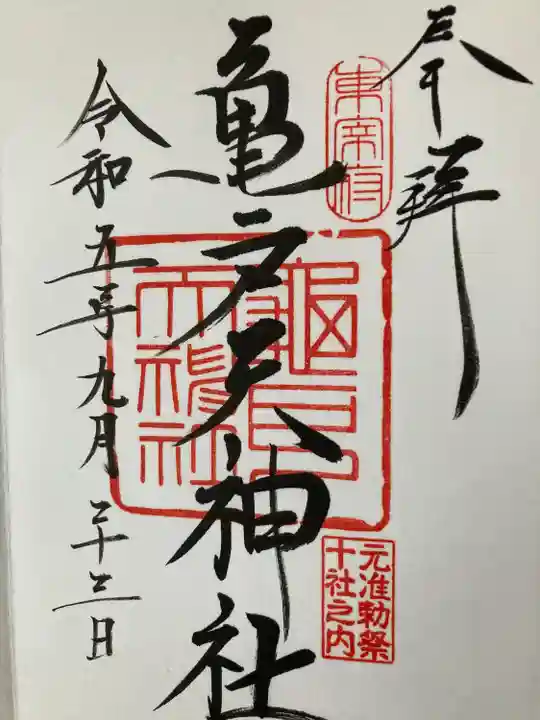 奉拝
東宰府
亀戸天神社
元准勅祭
十社之内
令和五年九月二十三日